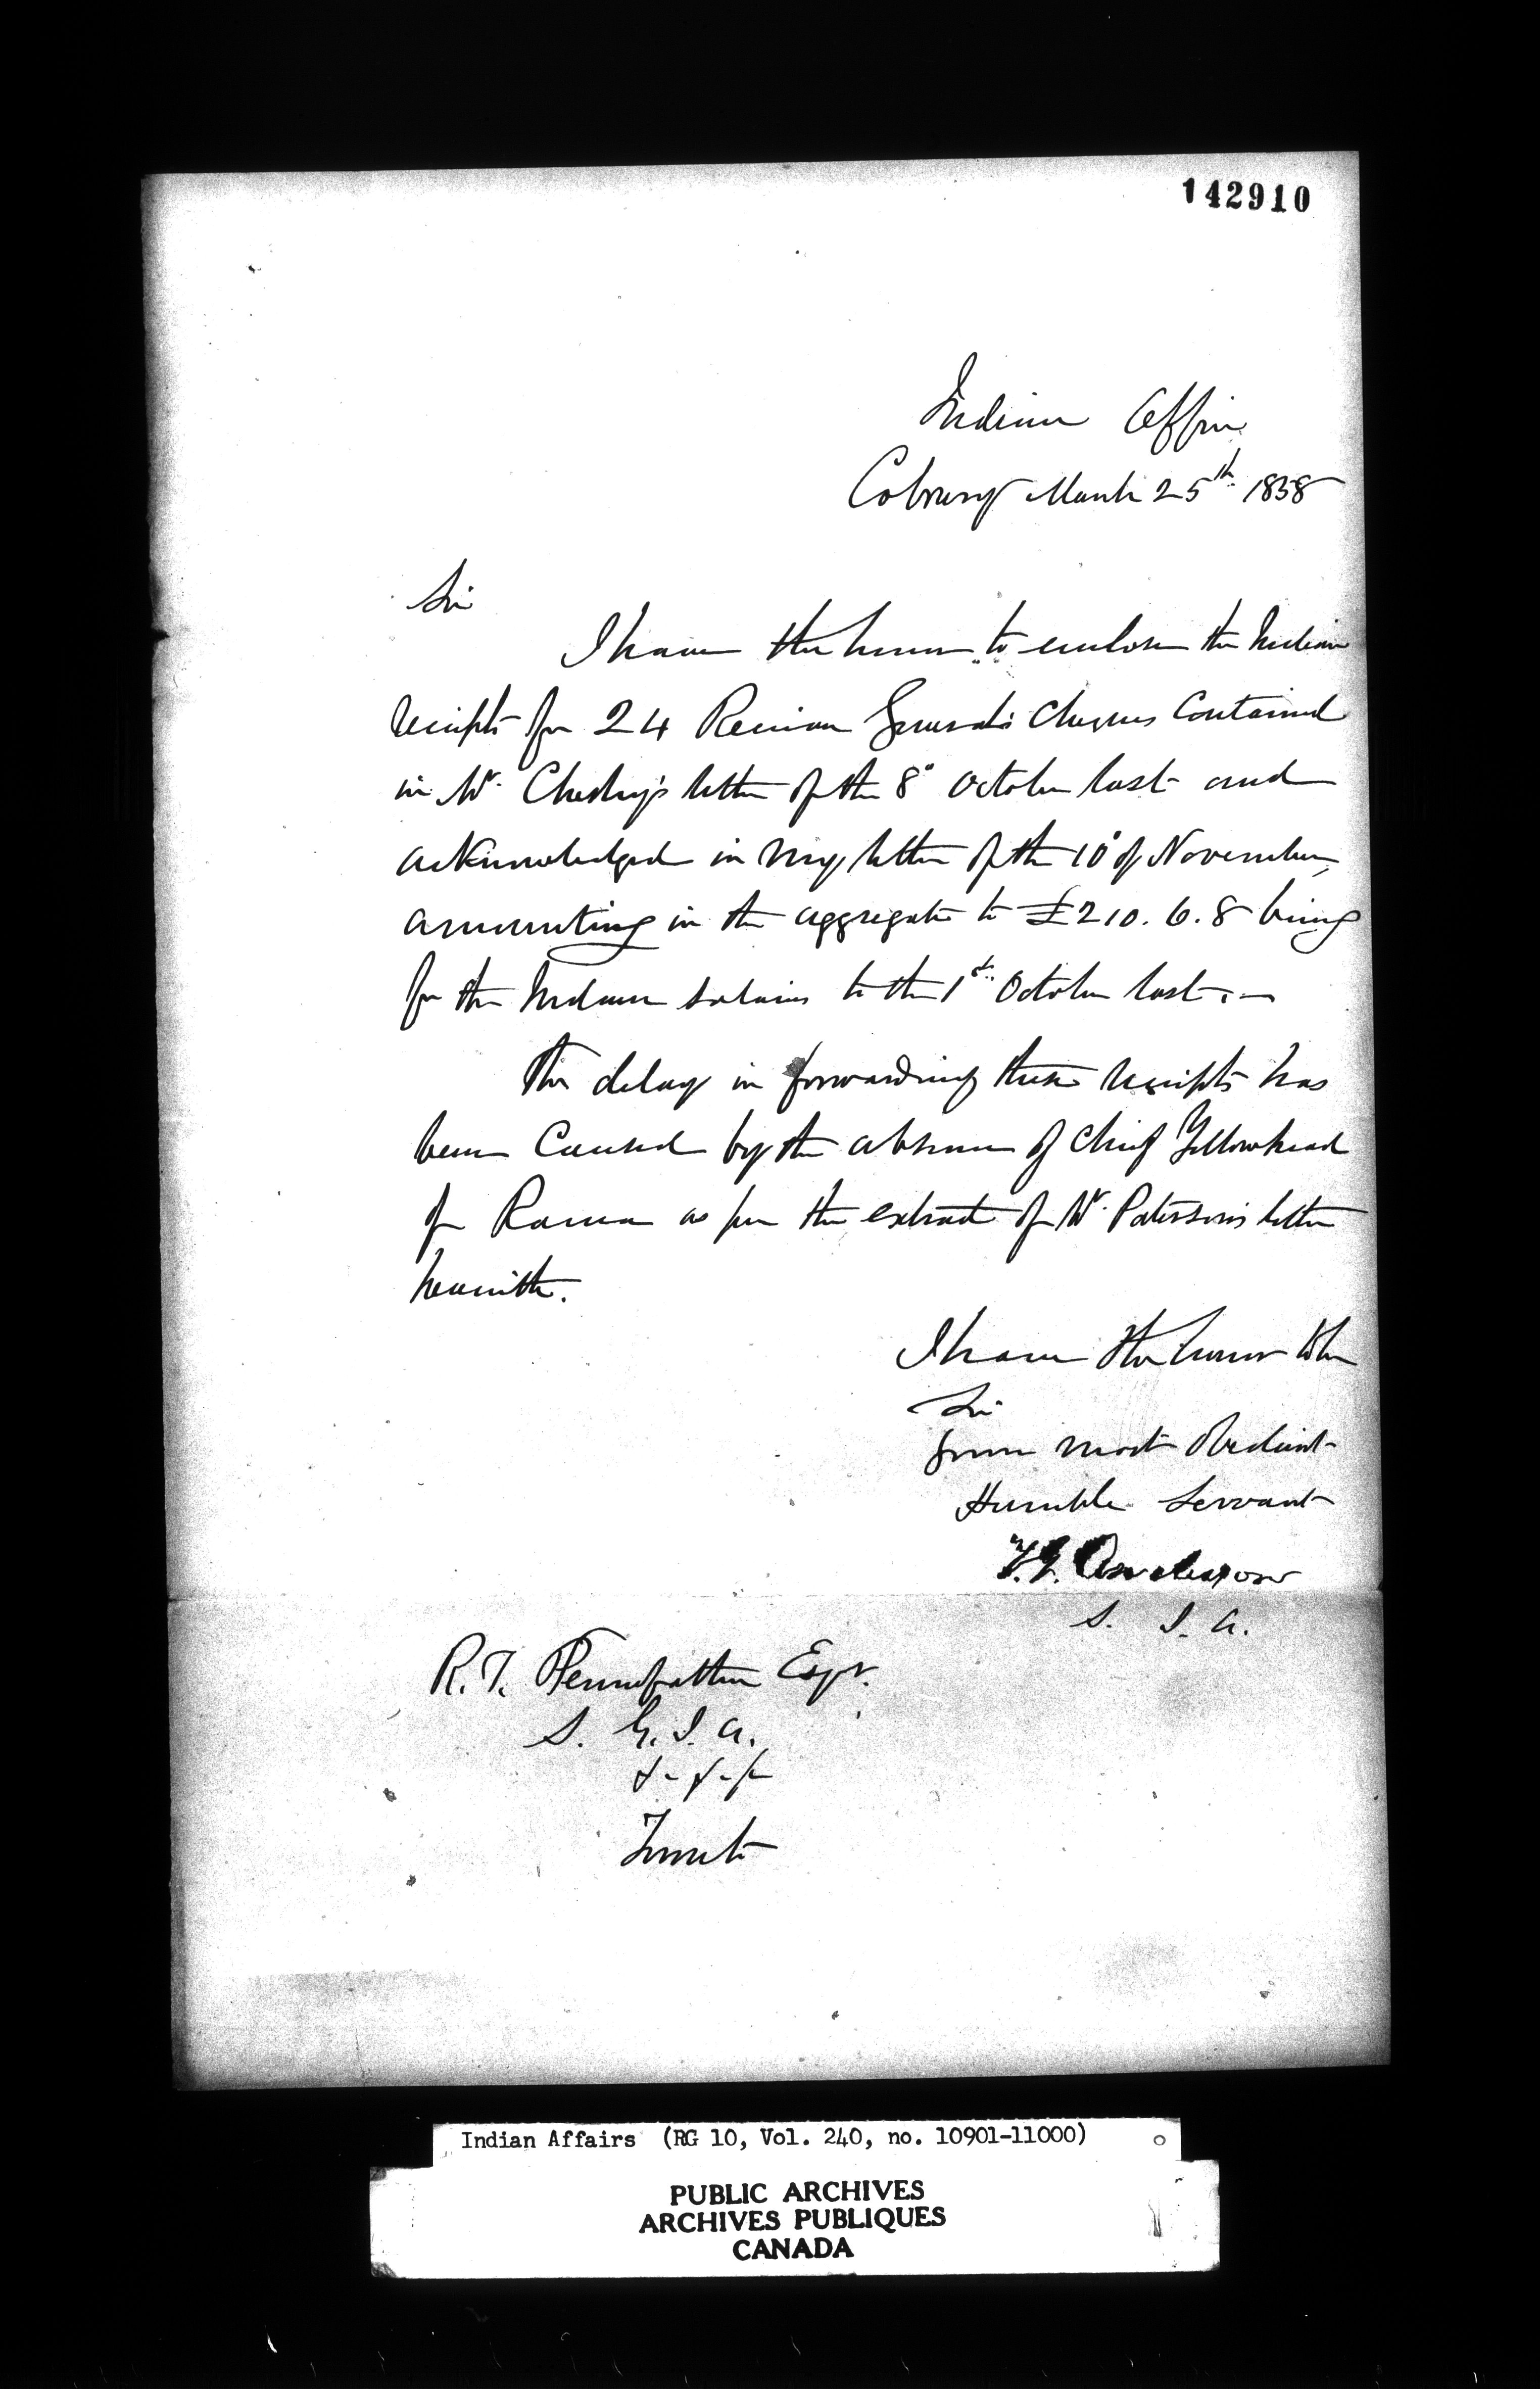 142910
Indian Office
Cobourg March 25th 1858
Sir
I have the honor to enclose the Indian
receipts for 24 Receiver General's cheques Contained
in Mr. Chesley's letter of the 8° October last and
acknowledged in my letter of the 10° of November,
amounting in the aggregate to £210.6.8 being
for the Indian salaries to the 1st October last. —
The delay in forwarding these receipts has
been Caused by the absence of Chief Yellowhead
of Rama as per the extract of Mr. Paterson's letter
herewith.
I have the honor to be
Sir
your most obedient
Humble Servant
T.G. Anderson
S. I. A.
R.T. Pennefather Esqr.
S. G. I. A.
&-&-&
Toronto
Indian Affairs (RG 10, Vol. 240, no. 10901-11000)
PUBLIC ARCHIVES
ARCHIVES PUBLIQUES
CANADA